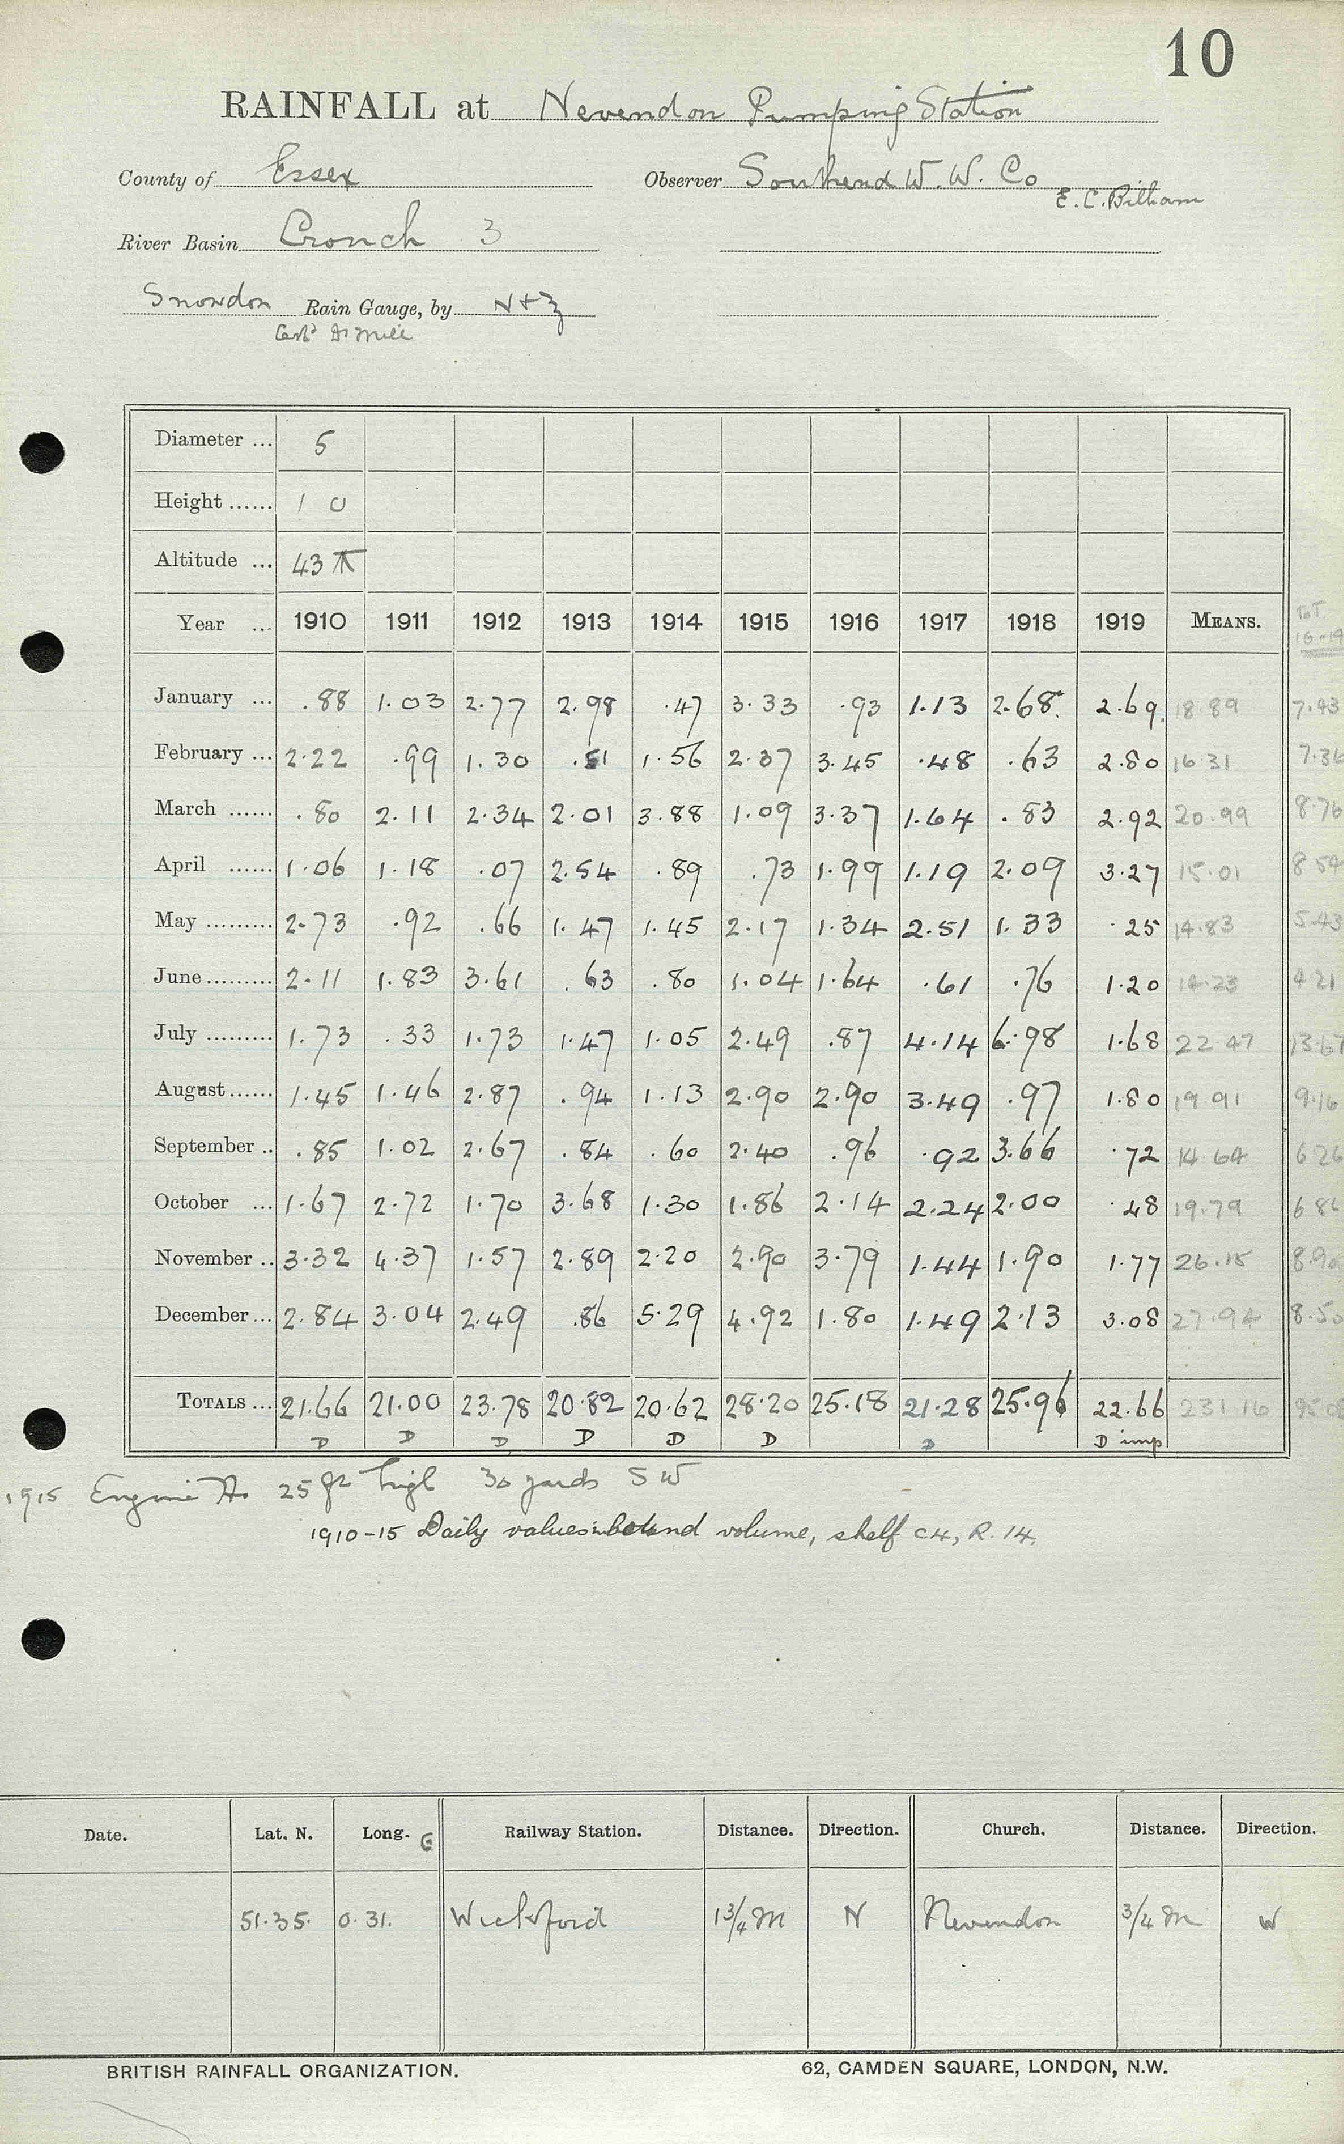 10
RAINFALL at Nevendon Pumping Station
County of Essex Observer Southend W. W. Co
E. C. Bilham
River Basin Crouch 3
Snowdon Rain Gauge, by N & Z
Diameter ... 5
Height ...... 1 0
Altitude ... 43 ft
Year ... 1910 1911 1912 1913 1914 1915 1916 1917 1918 1919 MEANS. 16-19
January ... .88 1.03 2.77 2.98 .47 3.33 .93 1.13 2.68 2.69 18.89 7.43
February ... 2.22 .99 1.30 .51 1.56 2.37 3.45 .48 .63 2.80 16.31 7.36
March ...... .80 2.11 2.34 2.01 3.88 1.09 3.37 1.64 .83 2.92 20.99 8.76
April ...... 1.06 1.18 .07 2.54 .89 .73 1.99 1.19 2.09 3.27 15.01 8.54
May ......... 2.73 .92 .66 1.47 1.45 2.17 1.34 2.51 1.33 .25 14.83 5.43
June ......... 2.11 1.83 3.61 .63 .80 1.04 1.64 .61 .76 1.20 14.23 4.21
July ......... 1.73 .33 1.73 1.47 1.05 2.49 .87 4.14 6.98 1.68 22.47 13.67
August ...... 1.45 1.46 2.87 .94 1.13 2.90 2.90 3.49 .97 1.80 19.91 9.16
September .. .85 1.02 2.67 .84 .60 2.40 .96 .92 3.66 .72 14.64 6.26
October ... 1.67 2.72 1.70 3.68 1.30 1.86 2.14 2.24 2.00 .48 19.79 6.86
November .. 3.32 4.37 1.57 2.89 2.20 2.90 3.79 1.44 1.90 1.77 26.15 8.90
December ... 2.84 3.04 2.49 .86 5.29 4.92 1.80 1.49 2.13 3.08 27.94 8.50
TOTALS ... 21.66 21.00 23.78 20.82 20.62 28.20 25.18 21.28 25.96 22.66 231.16 95.08
D D D D D D D D imp
1915 Engine Ho 25 ft high 30 yards SW
1910-15 Daily values in bound volume, shelf C4, R. 14.
Date. Lat. N. Long. E Railway Station. Distance. Direction. Church. Distance. Direction.
51.35. 0.31. Wickford 1 3/4 m N Nevendon 3/4 m W
BRITISH RAINFALL ORGANIZATION. 62, CAMDEN SQUARE, LONDON, N.W.